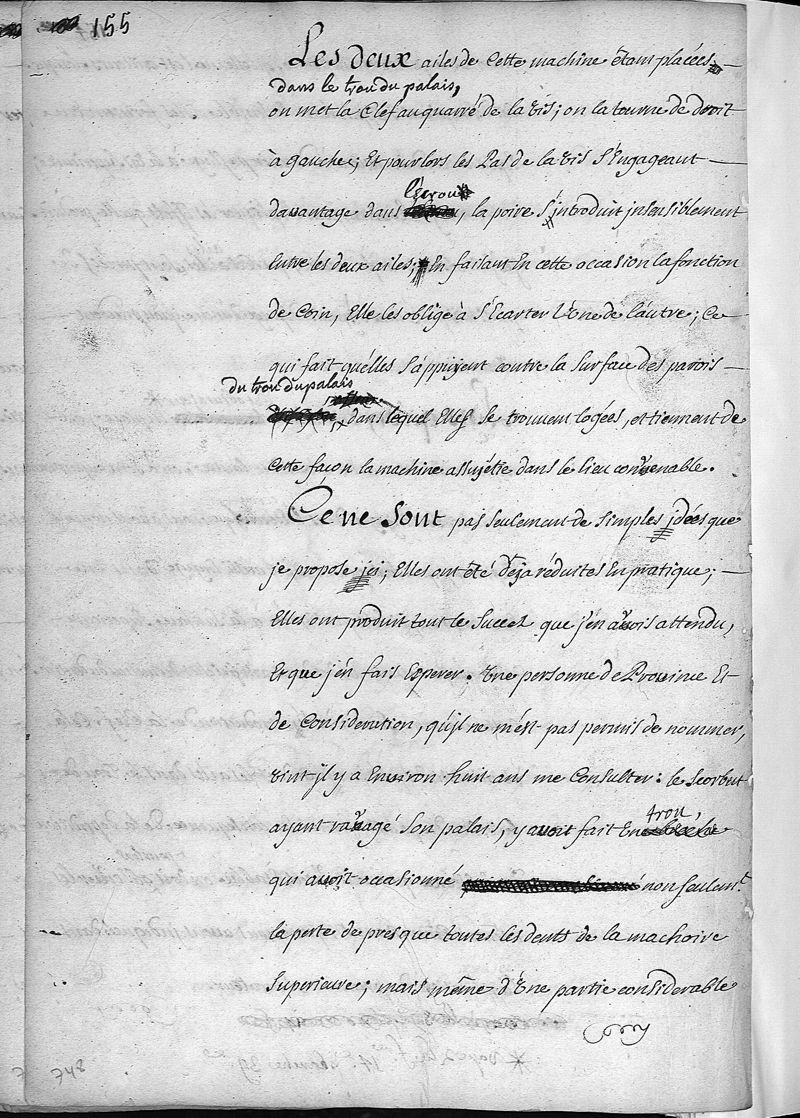 155
Les deux ailes de cette machine étant placées
dans le trou du palais,
on met la Clef au quarré de la vis; on la tourne de droit
à gauche; Et pour lors les Pas de la vis s'Engageant
l'écrou
davantage dans , la poire s'introduit jnsensiblement
Entre les deux ailes; En faisant En cette occasion la fonction
de Coin, Elle les oblige à s'Ecarter l'une de l'autre; Ce
qui fait qu'elles s'appuyent contre la surface des parois
du trou du palais
dans lequel Elles se trouvent logées, et tiennent de
cette façon la machine assujétie dans le lieu convenable.
Ce ne sont pas seulement de simples jdées que
je propose jci; Elles ont été déja réduites En pratique;
Elles ont produit tout le succez que j'en avois attendu,
Et que j'en fais Esperer. Une personne de Province Et
de Consideration, qu'jl ne m'est pas permis de nommer,
vint jl y a Environ huit ans me Consulter: le scorbut
trou,
ayant ravagé son palais, y avoit fait un
qui avoit occasionné non seulemt.
la perte de presque toutes les dents de la machoire
superieure; mais même d'Une partie considerable
748